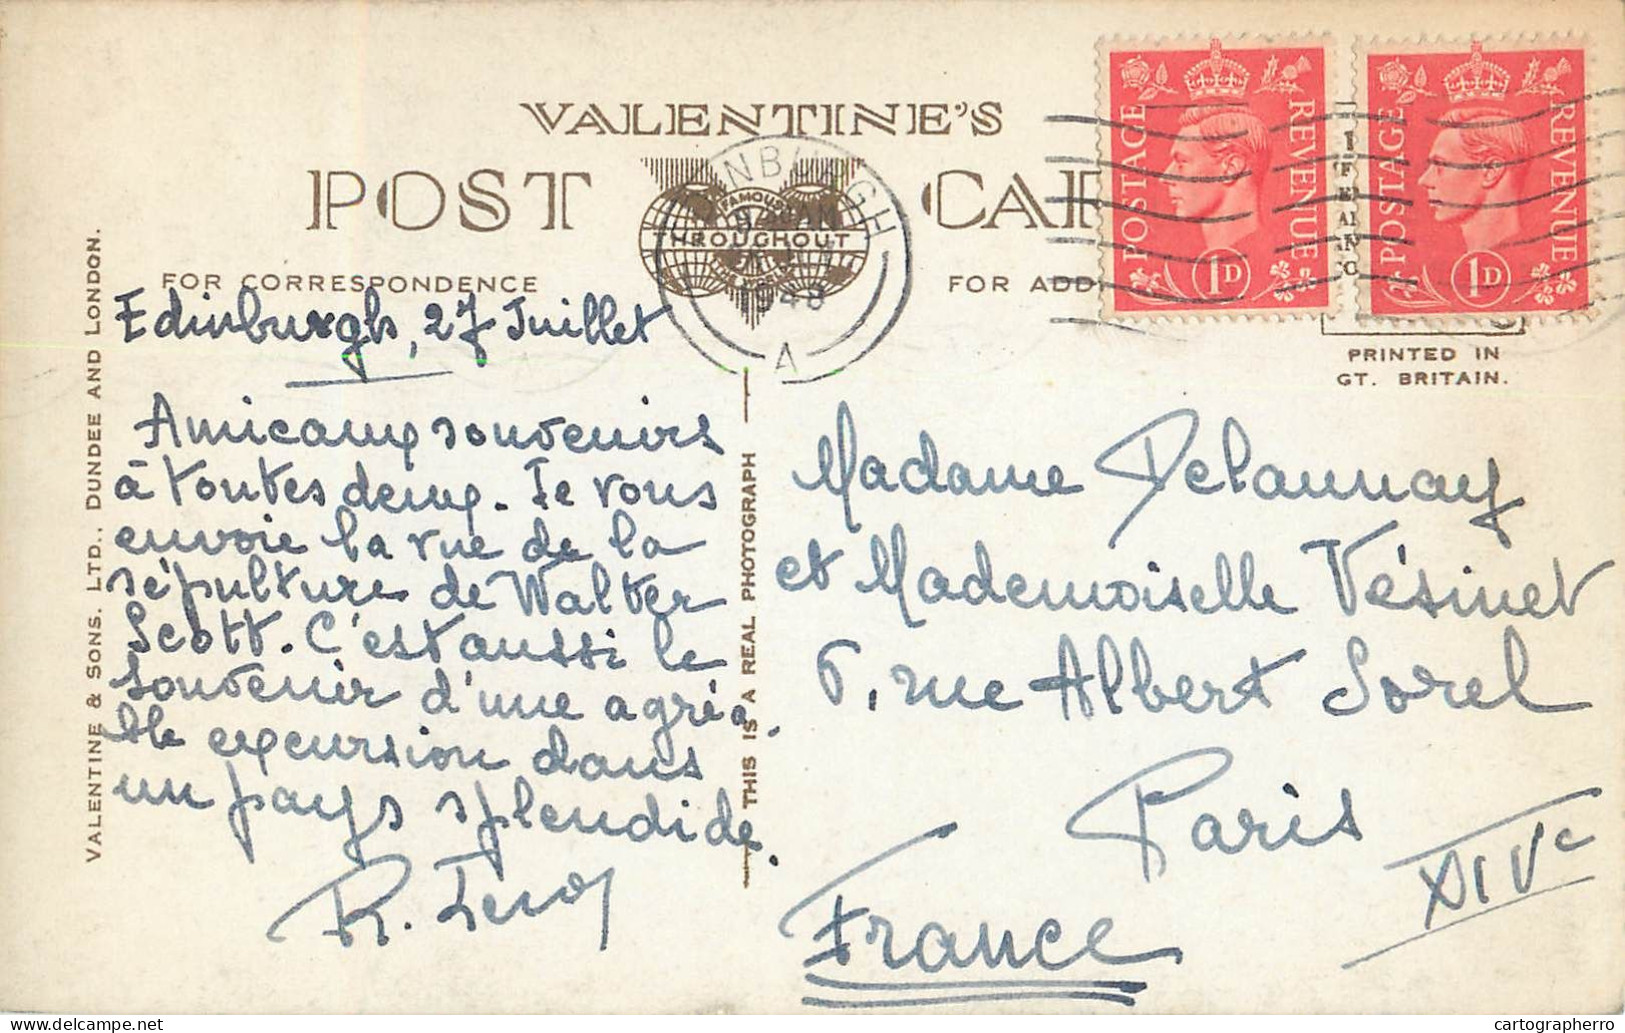 VALENTINE'S
POST CAR
FAMOUS
THROUGHOUT
FOR CORRESPONDENCE
FOR ADD
NBURGH
1948
A
POSTAGE REVENUE
1D
POSTAGE REVENUE
1D
PRINTED IN
GT. BRITAIN.
VALENTINE & SONS. LTD., DUNDEE AND LONDON.
THIS IS A REAL PHOTOGRAPH
Edinburgh, 27 Juillet
Amicaux souvenirs
à toutes deux. Je vous
envoie la vue de la
sépulture de Walter
Scott. C'est aussi le
souvenir d'une agréa
ble excursion dans
un pays splendide.
R.
Madame Delaunay
et Mademoiselle Vésinet
6, rue Albert Sorel
Paris
XIVe
France
cartographerro